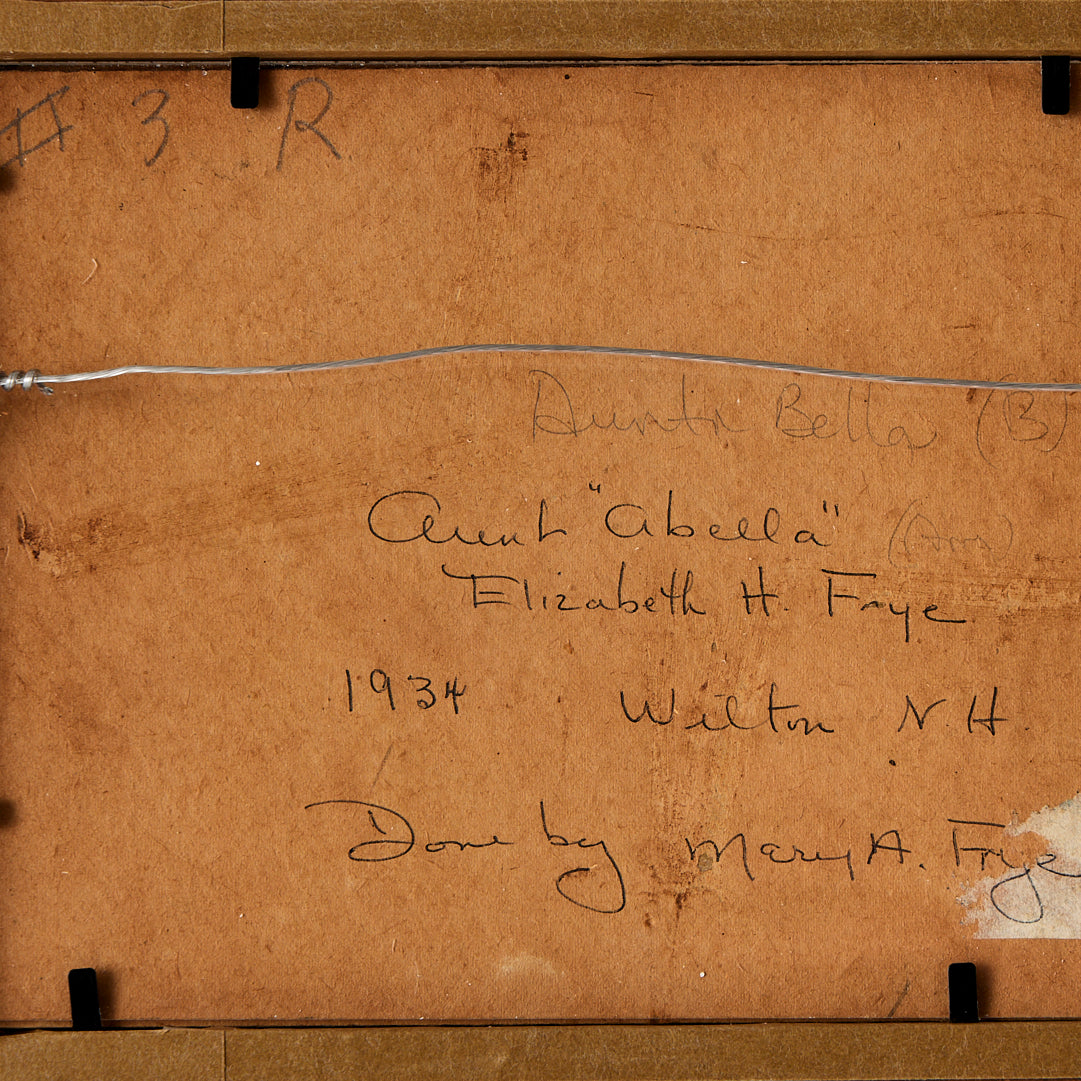 # 3 R
Bella (B)
Aunt "Abella"
Elizabeth H. Frye
1934 Wilton N.H.
Done by Mary A. Frye